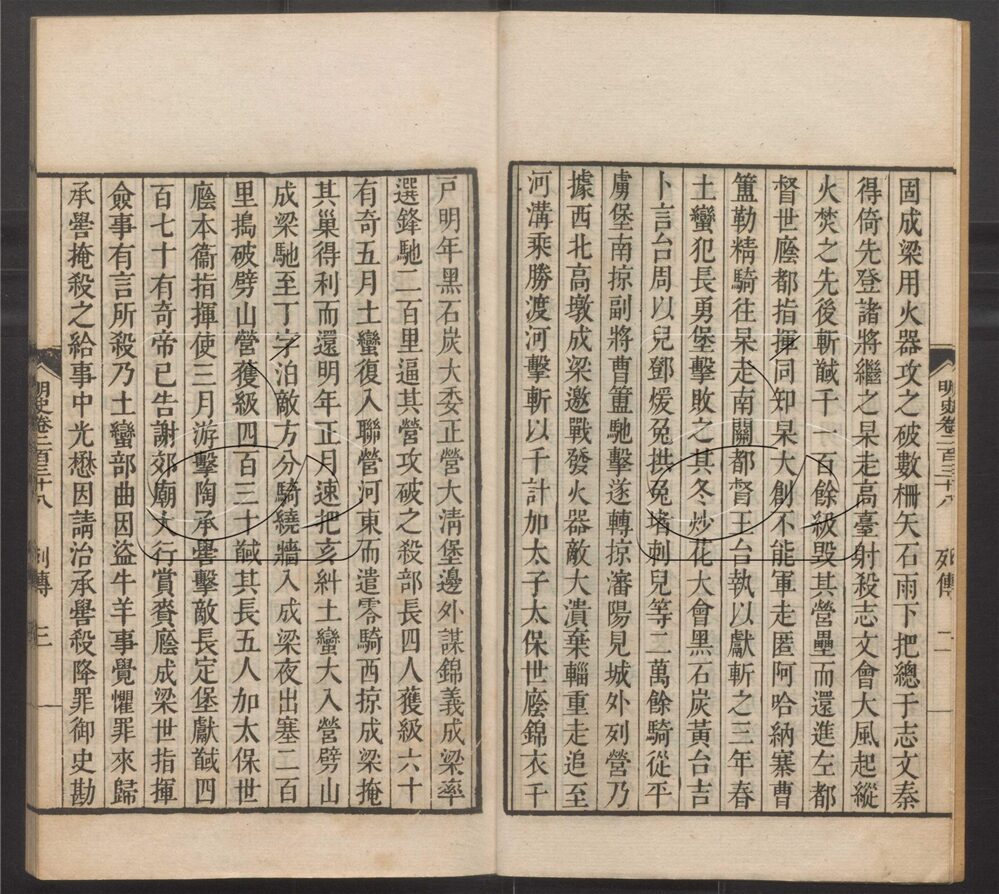 固成梁用火器攻之破數柵矢石雨下把總于志文秦
得倚先登諸將繼之杲走高臺射殺志文會大風起縱
火焚之先後斬馘千一百餘級毀其營壘而還進左都
督世廕都指揮同知杲大創不能軍走匿阿哈納寨曹
簠勒精騎往杲走南關都督王台執以獻斬之三年春
土蠻犯長勇堡擊敗之其冬炒花大會黑石炭黃台吉
卜言台周以兒鄧煖兔拱兔堵剌兒等二萬餘騎從平
虜堡南掠副將曹簠馳擊遂轉掠瀋陽見城外列營乃
據西北高墩成梁邀戰發火器敵大潰棄輜重走追至
河溝乘勝渡河擊斬以千計加太子太保世廕錦衣千
明史卷二百三十八 列傳 二
戸明年黑石炭大委正營大清堡邊外謀錦義成梁率
選鋒馳二百里逼其營攻破之殺部長四人獲級六十
有奇五月土蠻復入聯營河東而遣零騎西掠成梁掩
其巢得利而還明年正月速把亥糾土蠻大入營劈山
成梁馳至丁字泊敵方分騎繞牆入成梁夜出塞二百
里搗破劈山營獲級四百三十馘其長五人加太保世
廕本衞指揮使三月游擊陶承嚳擊敵長定堡獻馘四
百七十有奇帝已告謝郊廟大行賞賚廕成梁世指揮
僉事有言所殺乃土蠻部曲因盜牛羊事覺懼罪來歸
承嚳掩殺之給事中光懋因請治承嚳殺降罪御史勘
明史卷二百三十八 列傳 三